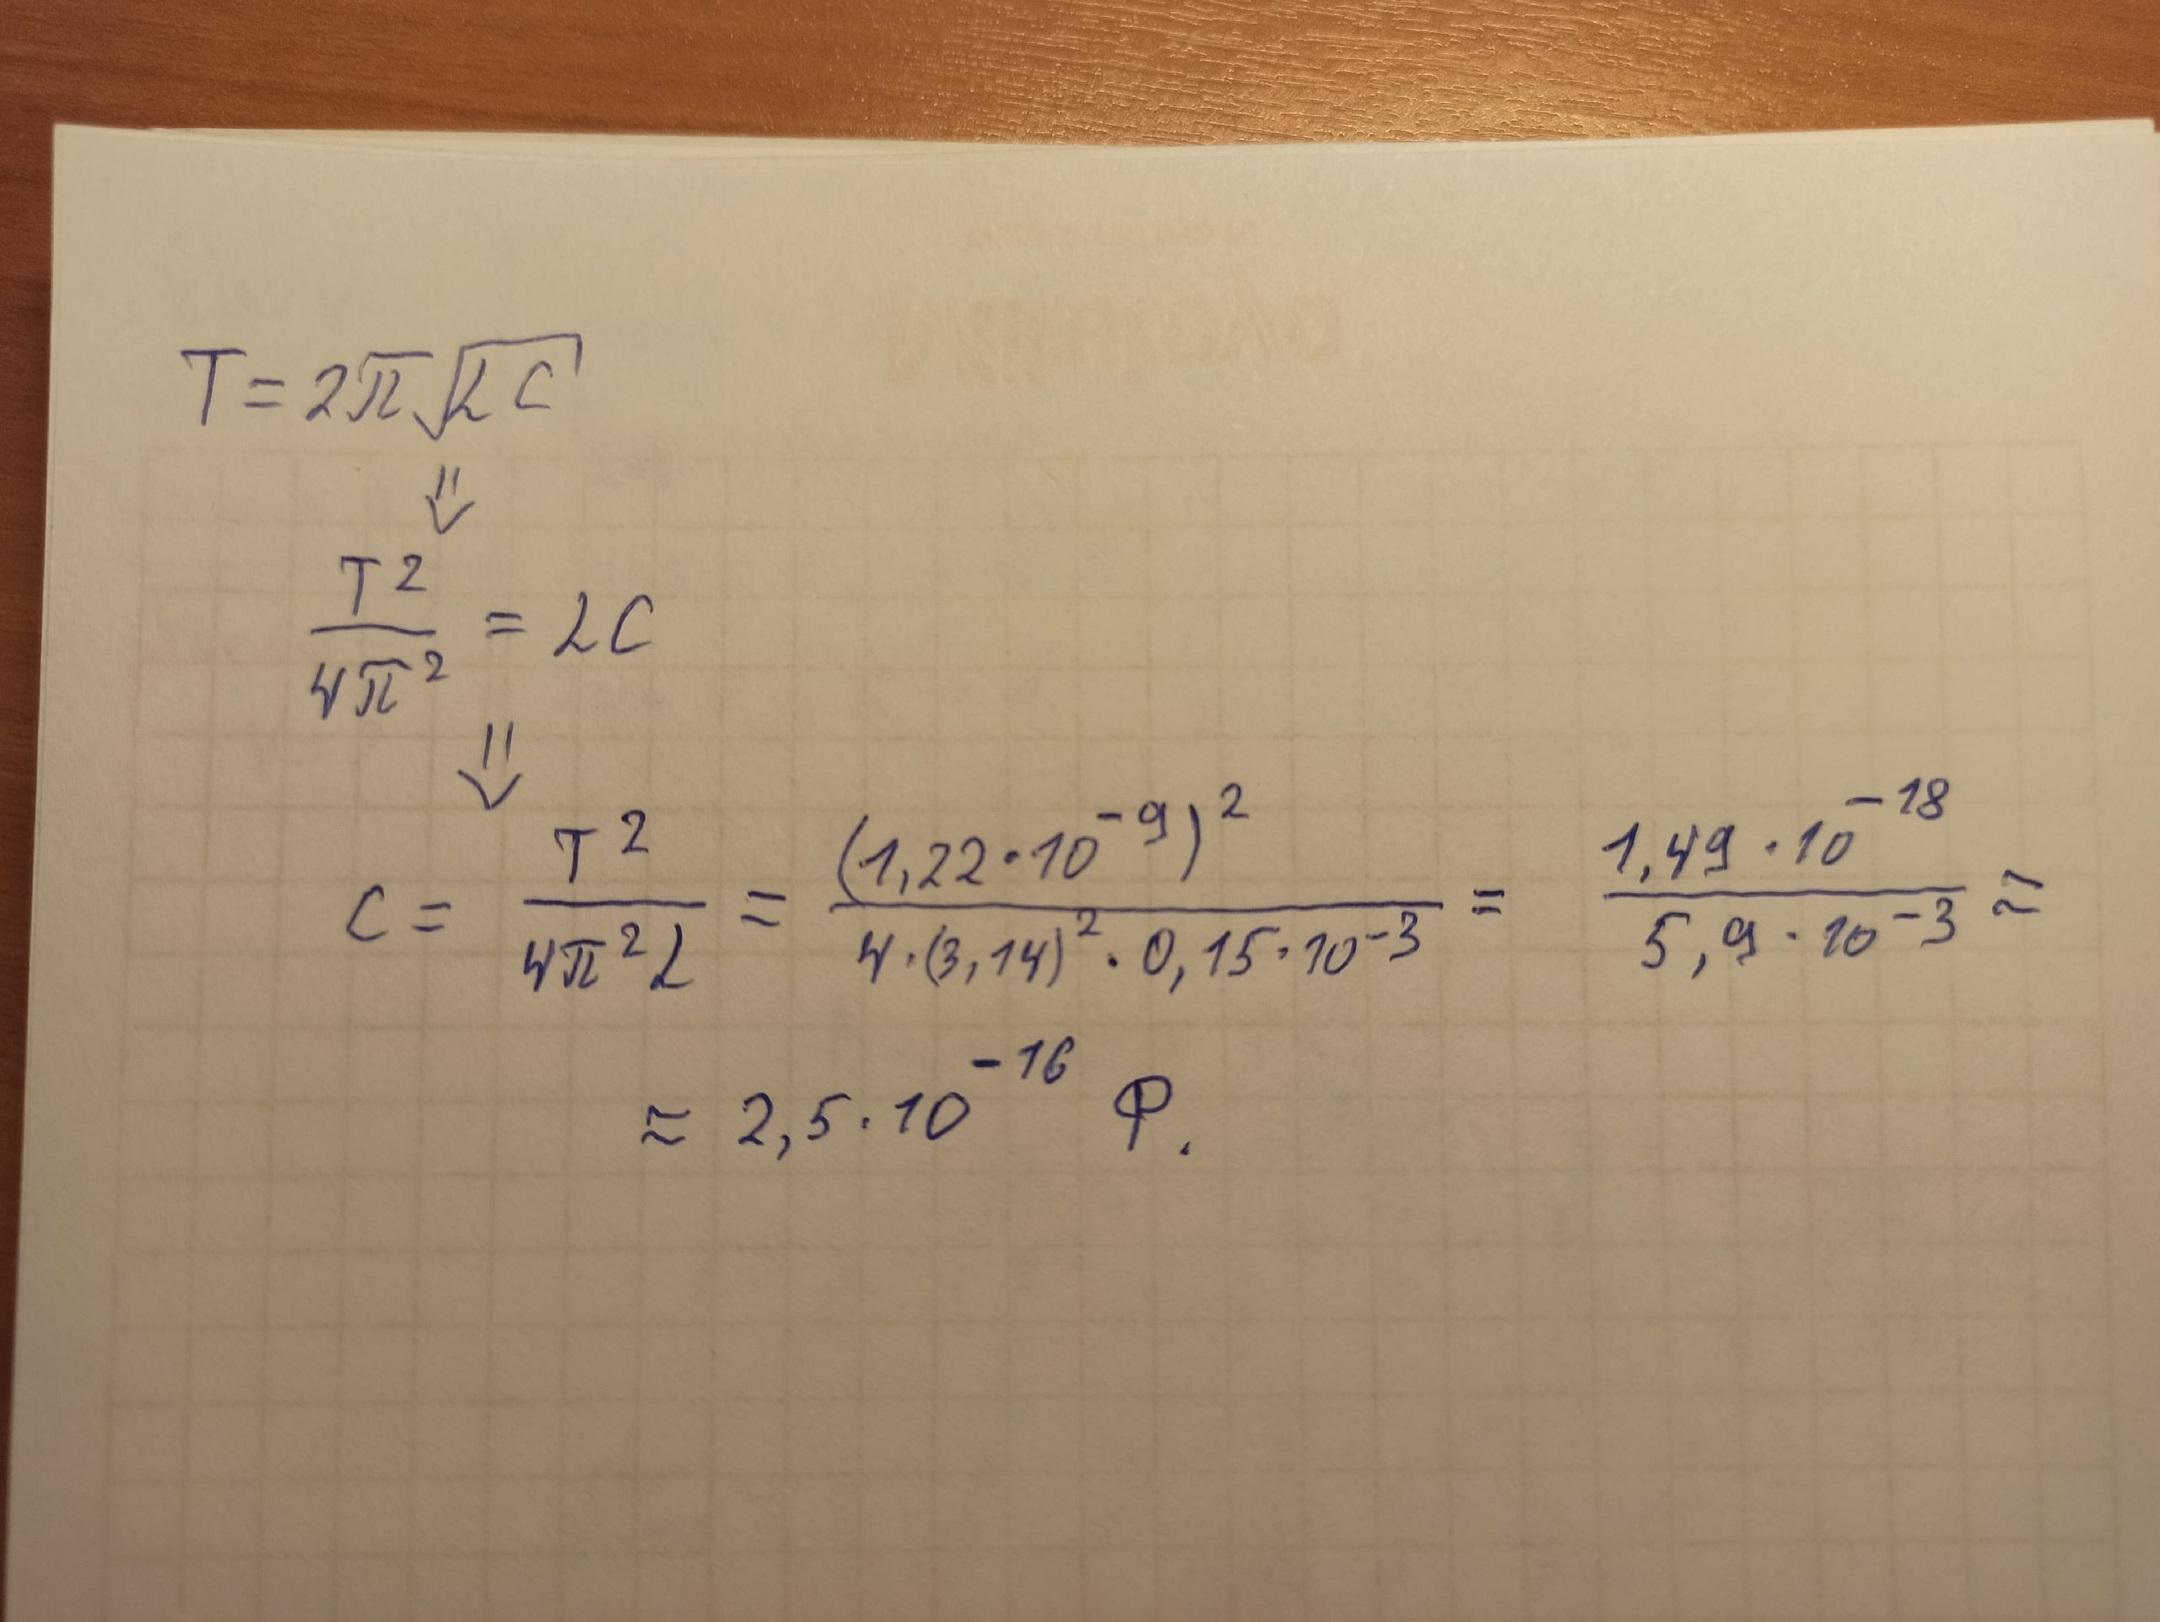 T = 2π√LC
⇓
T² / 4π² = LC
⇓
C = T² / 4π²L = (1,22·10⁻⁹)² / 4·(3,14)²·0,15·10⁻³ = 1,49·10⁻¹⁸ / 5,9·10⁻³ ≈
≈ 2,5·10⁻¹⁶ Ф.